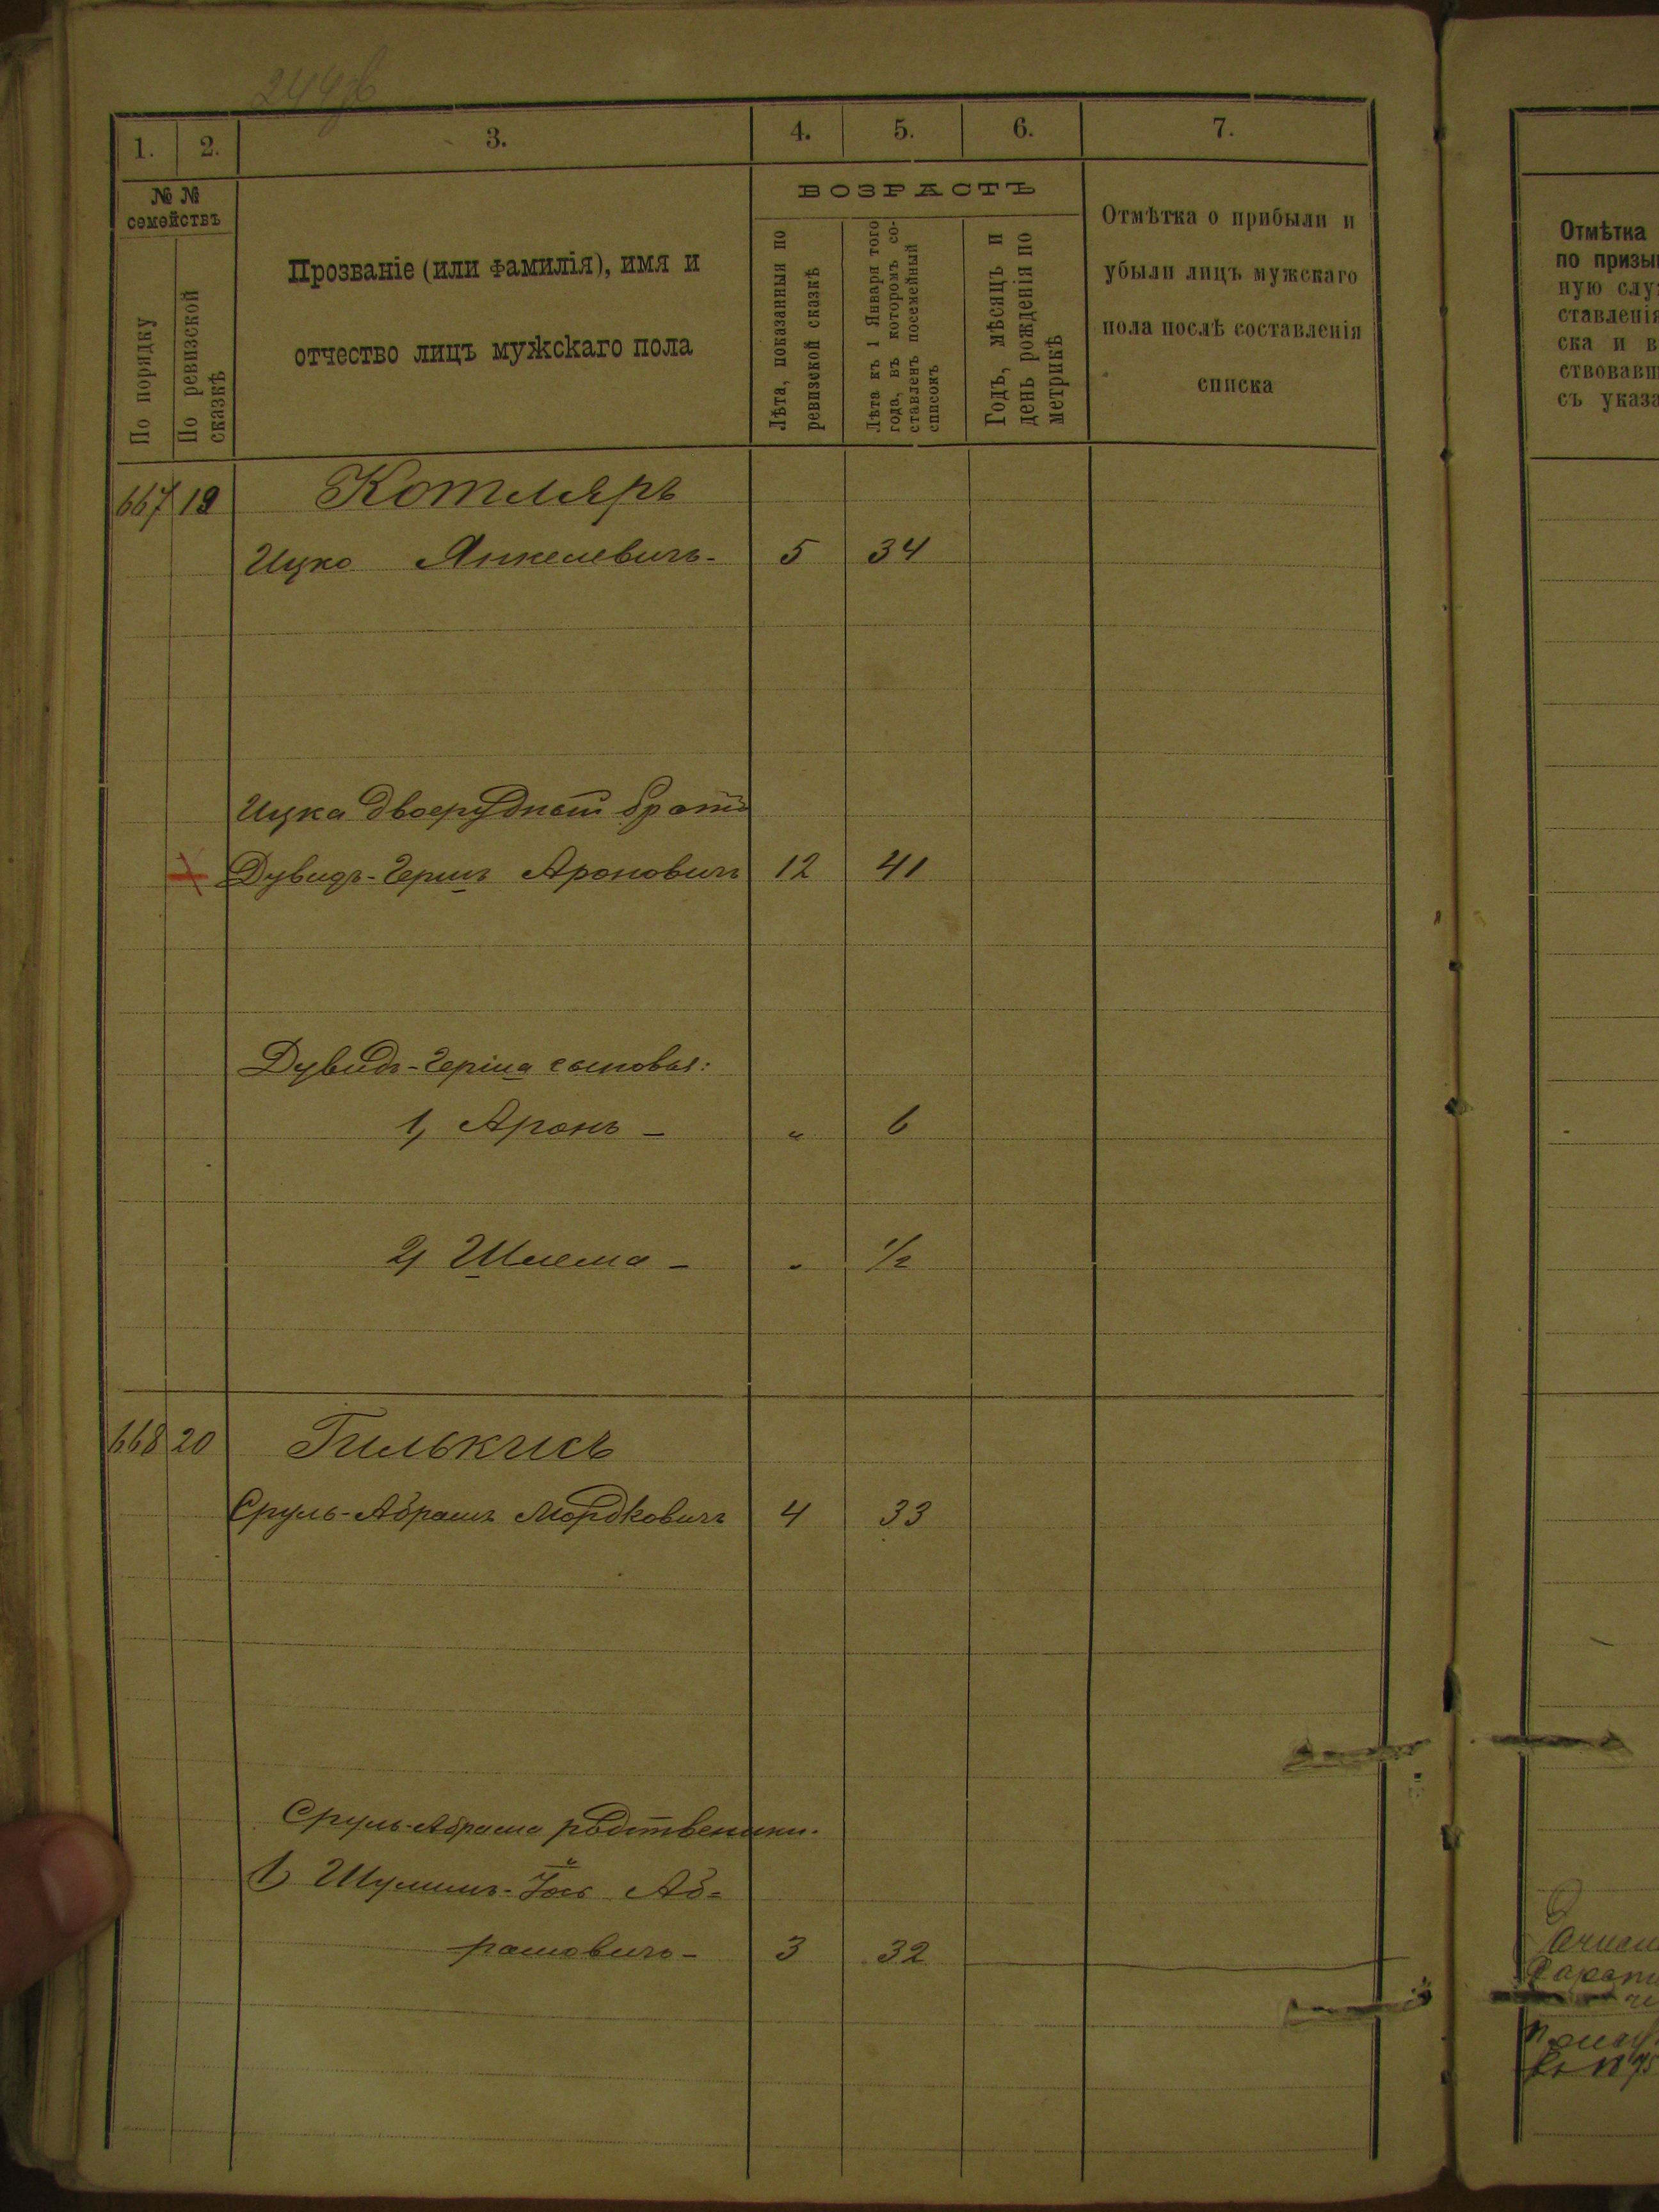 244об
1. 2. 3. 4. 5. 6. 7.
№ №
семействъ
По порядку
По ревизской
сказкѣ
Прозваніе (или фамилія), имя и
отчество лицъ мужскаго пола
ВОЗРАСТЪ
Лѣта, показанныя по
ревизской сказкѣ
Лѣта къ 1 Января того
года, въ которомъ со-
ставленъ посемейный
списокъ
Годъ, мѣсяцъ и
день рожденія по
метрикѣ
Отмѣтка о прибыли и
убыли лицъ мужскаго
пола послѣ составленія
списка
Отмѣтка
по призы
ную слу
ставленія
ска и в
ствовавш
съ указа
667 19 Котляръ
Ицко Янкелевичъ - 5 34
Ицка двоерудный братъ
Дувидъ-Гершъ Ароновичъ 12 41
Дувидъ-Герша сыновья:
1, Аронъ - " 6
2, Шлема - " 1/2
668 20 Гилькисъ
Сруль-Абрамъ Мордковичъ 4 33
Сруль-Абрама родственики.
1) Шулимъ-Іось Аб=
рамовичъ - 3 32